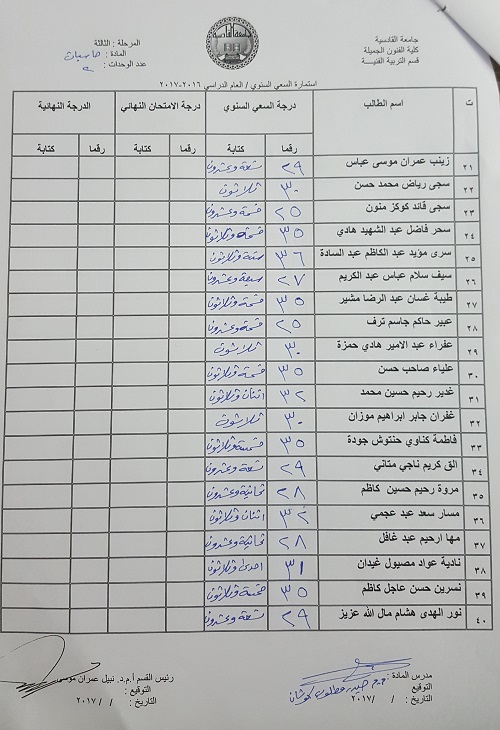 جامعة القادسية
كلية الفنون الجميلة
قسم التربية الفنية
المرحلة : الثالثة
المادة : حاسبات
عدد الوحدات : ٢
استمارة السعي السنوي / العام الدراسي ٢٠١٦-٢٠١٧
ت اسم الطالب درجة السعي السنوي درجة الامتحان النهائي الدرجة النهائية
رقما كتابة رقما كتابة رقما كتابة
٢١ زينب عمران موسى عباس ٢٩ تسعة وعشرون
٢٢ سجى رياض محمد حسن ٣٠ ثلاثون
٢٣ سجى قائد كوكز منون ٢٥ خمسة وعشرون
٢٤ سحر فاضل عبد الشهيد هادي ٣٥ خمسة وثلاثون
٢٥ سرى مؤيد عبد الكاظم عبد السادة ٣٦ ستة وثلاثون
٢٦ سيف سلام عباس عبد الكريم ٢٧ سبعة وعشرون
٢٧ طيبة غسان عبد الرضا مشير ٣٥ خمسة وثلاثون
٢٨ عبير حاكم جاسم ترف ٢٥ خمسة وعشرون
٢٩ عفراء عبد الامير هادي حمزة ٣٠ ثلاثون
٣٠ علياء صاحب حسن ٣٥ خمسة وثلاثون
٣١ غدير رحيم حسين محمد ٣٢ اثنان وثلاثون
٣٢ غفران جابر ابراهيم موزان ٣٠ ثلاثون
٣٣ فاطمة كناوي حنتوش جودة ٣٥ خمسة وثلاثون
٣٤ الق كريم ناجي متاني ٢٩ تسعة وعشرون
٣٥ مروة رحيم حسين كاظم ٢٨ ثمانية وعشرون
٣٦ مسار سعد عبد عجمي ٣٢ اثنان وثلاثون
٣٧ مها ارحيم عبد غافل ٢٨ ثمانية وعشرون
٣٨ نادية عواد مصيول غيدان ٣١ احدى وثلاثون
٣٩ نسرين حسن عاجل كاظم ٣٥ خمسة وثلاثون
٤٠ نور الهدى هشام مال الله عزيز ٢٩ تسعة وعشرون
مدرس المادة : م.م حيدر
التوقيع
التاريخ : / /٢٠١٧
رئيس القسم أ.م.د. نبيل عمران موسى
التوقيع :
التاريخ : / /٢٠١٧